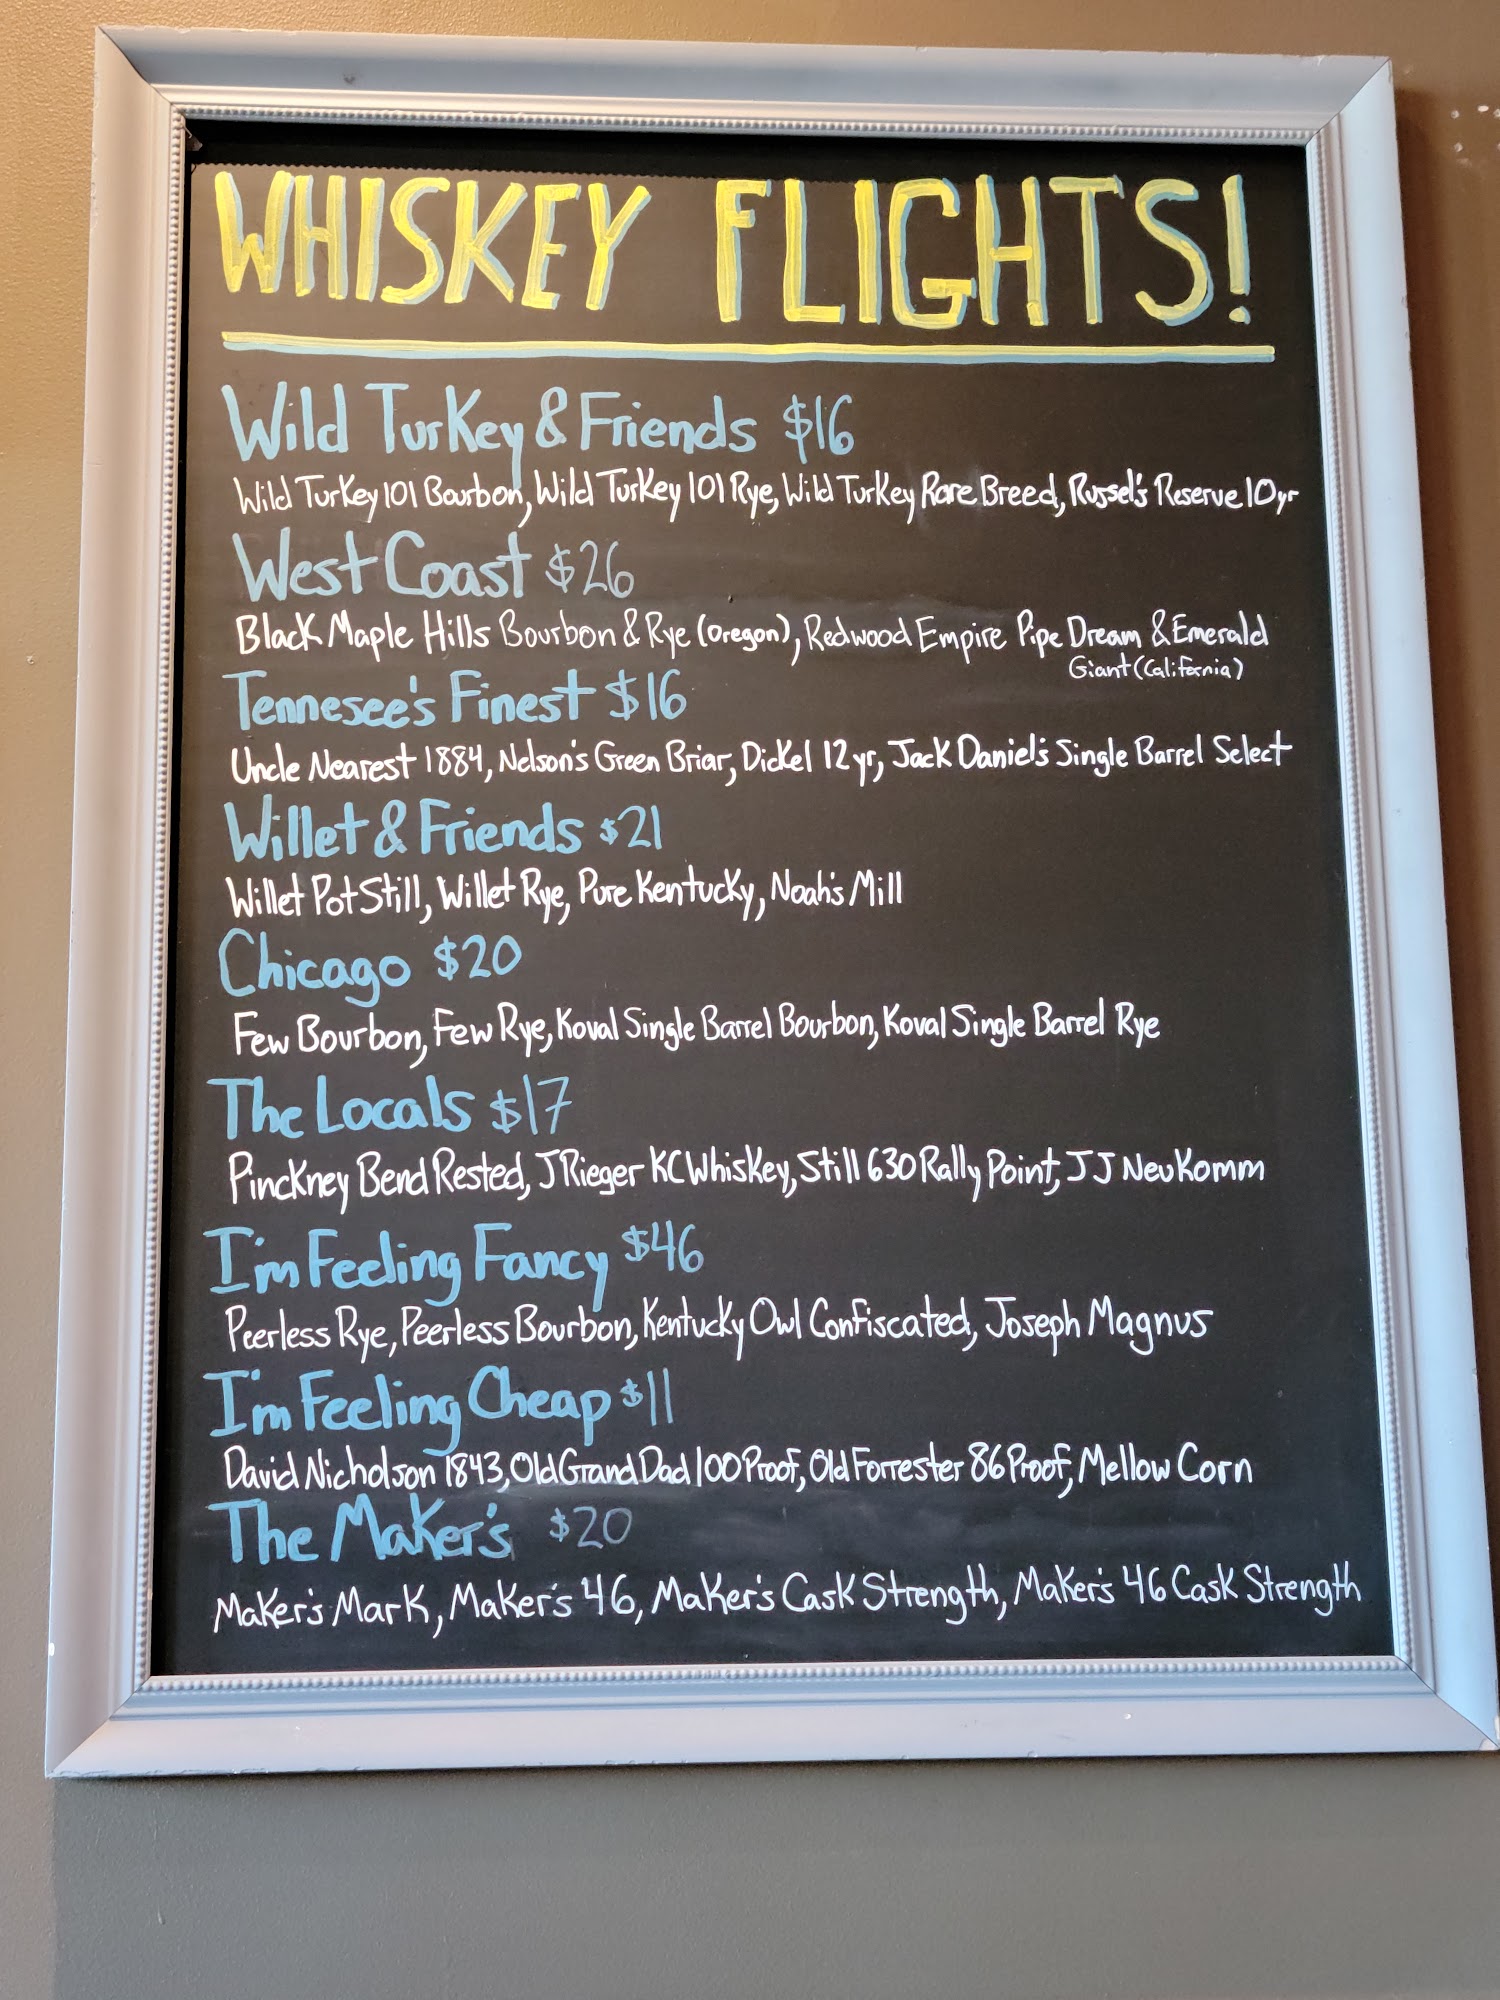 WHISKEY FLIGHTS!
Wild Turkey & Friends $16
Wild Turkey 101 Bourbon, Wild Turkey 101 Rye, Wild Turkey Rare Breed, Russel's Reserve 10yr
West Coast $26
Black Maple Hills Bourbon & Rye (Oregon), Redwood Empire Pipe Dream & Emerald
Giant (California)
Tennesee's Finest $16
Uncle Nearest 1884, Nelson's Green Briar, Dickel 12 yr, Jack Daniel's Single Barrel Select
Willet & Friends $21
Willet Pot Still, Willet Rye, Pure Kentucky, Noah's Mill
Chicago $20
Few Bourbon, Few Rye, Koval Single Barrel Bourbon, Koval Single Barrel Rye
The Locals $17
Pinckney Bend Rested, J Rieger KC Whiskey, Still 630 Rally Point, J J Neukomm
I'm Feeling Fancy $46
Peerless Rye, Peerless Bourbon, Kentucky Owl Confiscated, Joseph Magnus
I'm Feeling Cheap $11
David Nicholson 1843, Old Grand Dad 100 Proof, Old Forrester 86 Proof, Mellow Corn
The Maker's $20
Maker's Mark, Maker's 46, Maker's Cask Strength, Maker's 46 Cask Strength